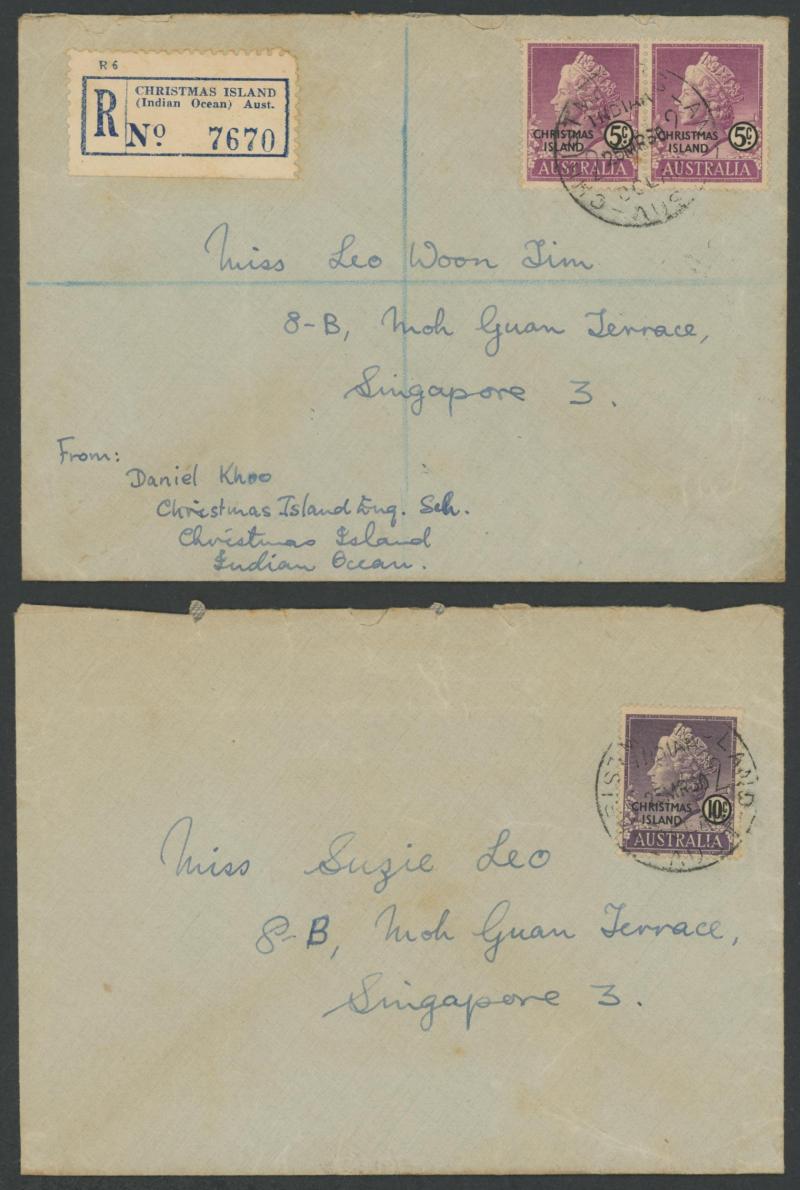 R 6
R
CHRISTMAS ISLAND
(Indian Ocean) Aust.
No 7670
CHRISTMAS ISLAND 5c
AUSTRALIA
CHRISTMAS ISLAND 5c
AUSTRALIA
INDIAN
Miss Leo Woon Jim
8-B, Moh Guan Terrace,
Singapore 3.
From:
Daniel Khoo
Christmas Island Eng. Sch.
Christmas Island
Indian Ocean.
CHRISTMAS ISLAND 10c
AUSTRALIA
INDIAN
Miss Suzie Leo
8-B, Moh Guan Terrace,
Singapore 3.